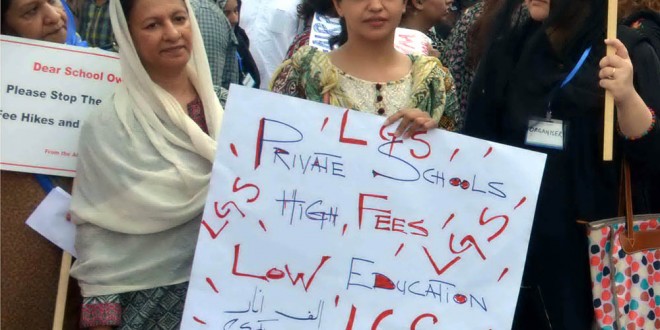 Dear School Ow
Please Stop The
Fee Hikes and
From the
ORGANIZER
LGS
PRIVATE SCHOOLS
HIGH, FEES
LGS
LGS
LOW EDUCATION
الف انار
LGS